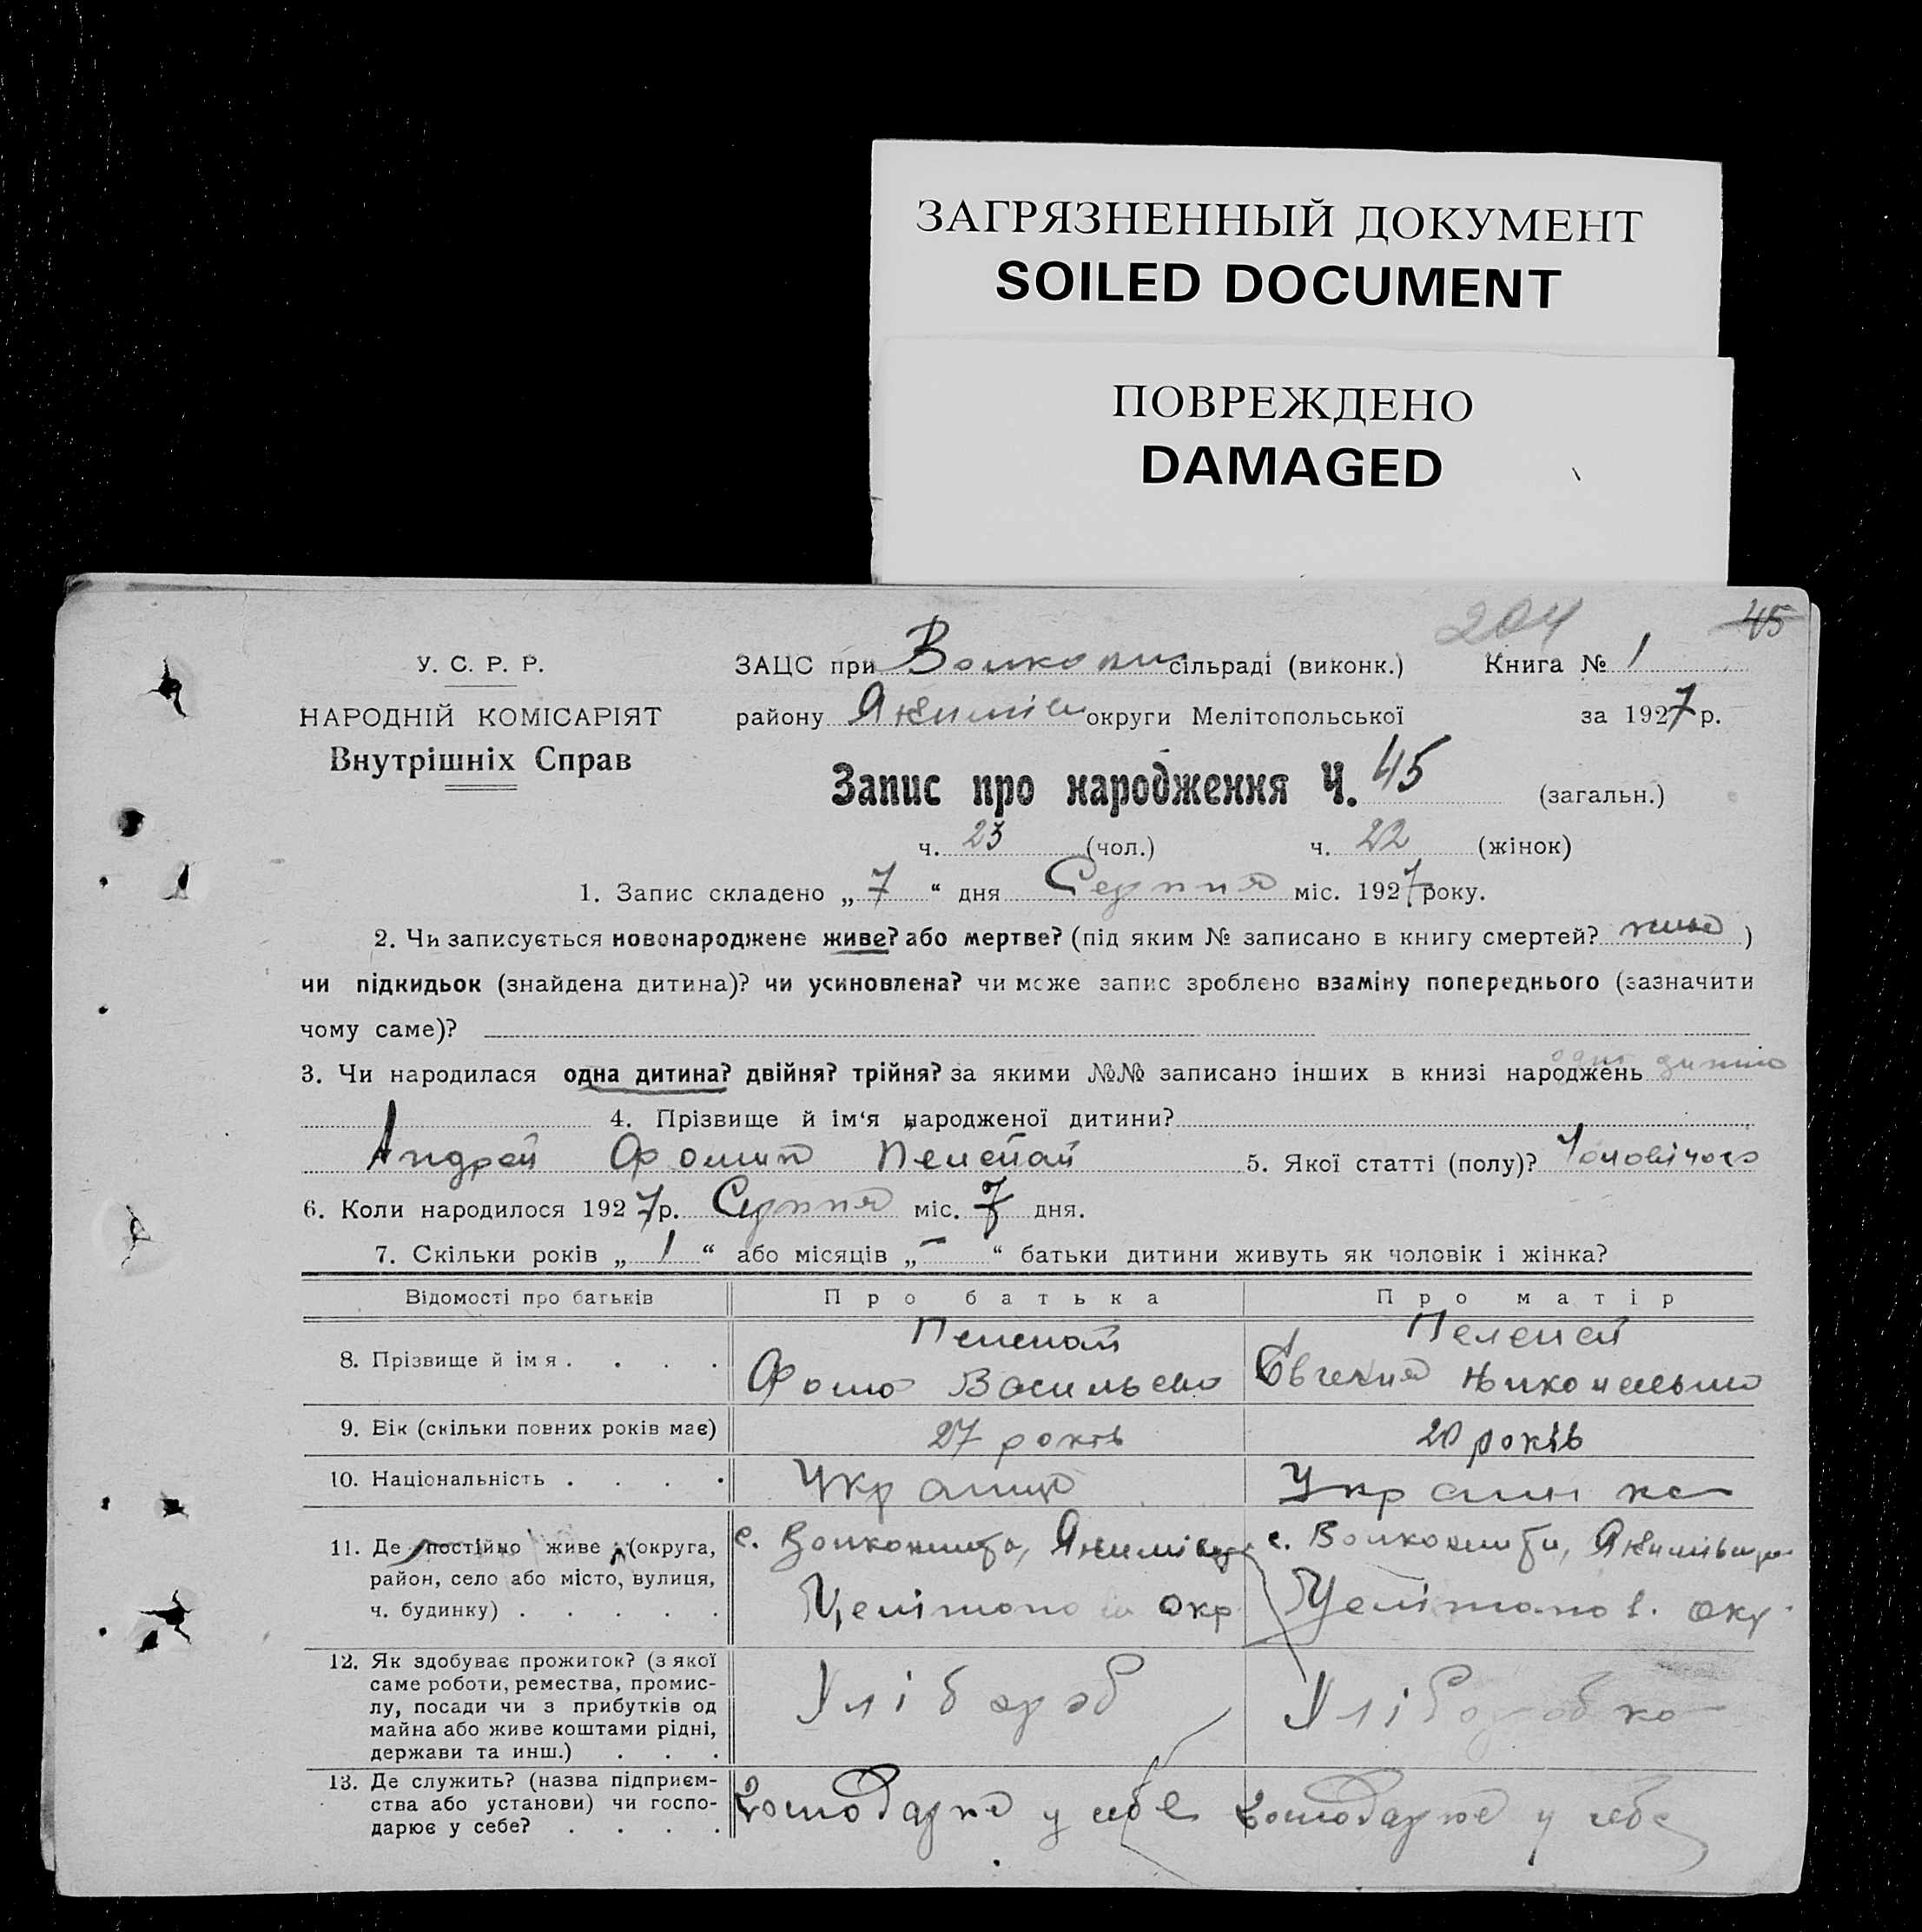 ЗАГРЯЗНЕННЫЙ ДОКУМЕНТ
SOILED DOCUMENT
ПОВРЕЖДЕНО
DAMAGED
204 45
У. С. Р. Р.
НАРОДНІЙ КОМІСАРІЯТ
Внутрішніх Справ
ЗАЦС при сільраді (виконк.) Книга № 1
району Якимів округи Мелітопольської за 1927 р.
Запис про народження Ч. 45 (загальн.)
ч. 23 (чол.) ч. 22 (жінок)
1. Запис складено „ 7 “ дня Серпня міс. 1927 року.
2. Чи записується новонароджене живе? або мертве? (під яким № записано в книгу смертей? живе )
чи підкидьок (знайдена дитина)? чи усиновлена? чи може запис зроблено взаміну попереднього (зазначити
чому саме)?
3. Чи народилася одна дитина? двійня? трійня? за якими №№ записано інших в книзі народжень одна дитина
4. Прізвище й ім‘я народженої дитини?
Андрей Фомич Пелепай 5. Якої статті (полу)? Чоловічого
6. Коли народилося 1927 р. Серпня міс. 7 дня.
7. Скільки років „ 1 “ або місяців „ – “ батьки дитини живуть як чоловік і жінка?
Відомості про батьків Про батька Про матір
8. Прізвище й імя . . . . Пелепай Фома Васильев Пелепей Євгения
9. Вік (скільки повних років має) 27 років 20 років
10. Національність . . . . Українец Українка
11. Де постійно живе (округа,
район, село або місто, вулиця,
ч. будинку) . . . . .
с. Якимівськ
Мелітопол окр
с. Якимівськ
Мелітопол. окр.
12. Як здобуває прожиток? (з якої
саме роботи, ремества, промис-
лу, посади чи з прибутків од
майна або живе коштами рідні,
держави та инш.) . . .
Хлібороб Хліборобка
13. Де служить? (назва підприєм-
ства або установи) чи госпо-
дарює у себе? . . . .
Господарює у себе Господарює у себе